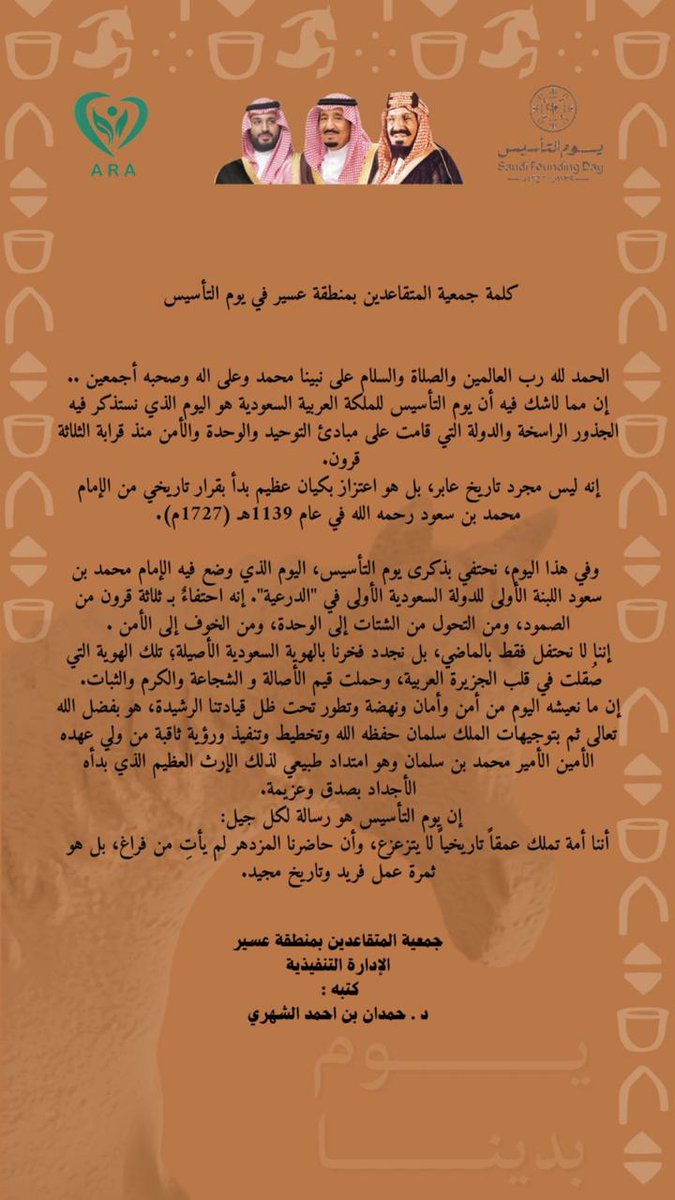 ARA
يوم التأسيس
Saudi Founding Day
كلمة جمعية المتقاعدين بمنطقة عسير في يوم التأسيس
الحمد لله رب العالمين والصلاة والسلام على نبينا محمد وعلى اله وصحبه أجمعين ..
إن مما لاشك فيه أن يوم التأسيس للملكة العربية السعودية هو اليوم الذي نستذكر فيه
الجذور الراسخة والدولة التي قامت على مبادئ التوحيد والوحدة والأمن منذ قرابة الثلاثة
قرون.
إنه ليس مجرد تاريخ عابر، بل هو اعتزاز بكيان عظيم بدأ بقرار تاريخي من الإمام
محمد بن سعود رحمه الله في عام 1139هـ (1727م).
وفي هذا اليوم، نحتفي بذكرى يوم التأسيس، اليوم الذي وضع فيه الإمام محمد بن
سعود اللبنة الأولى للدولة السعودية الأولى في "الدرعية". إنه احتفاءٌ بـ ثلاثة قرون من
الصمود، ومن التحول من الشتات إلى الوحدة، ومن الخوف إلى الأمن .
إننا لا نحتفل فقط بالماضي، بل نجدد فخرنا بالهوية السعودية الأصيلة؛ تلك الهوية التي
صُقلت في قلب الجزيرة العربية، وحملت قيم الأصالة و الشجاعة والكرم والثبات.
إن ما نعيشه اليوم من أمن وأمان ونهضة وتطور تحت ظل قيادتنا الرشيدة، هو بفضل الله
تعالى ثم بتوجيهات الملك سلمان حفظه الله وتخطيط وتنفيذ ورؤية ثاقبة من ولي عهده
الأمين الأمير محمد بن سلمان وهو امتداد طبيعي لذلك الإرث العظيم الذي بدأه
الأجداد بصدق وعزيمة.
إن يوم التأسيس هو رسالة لكل جيل:
أننا أمة تملك عمقاً تاريخياً لا يتزعزع، وأن حاضرنا المزدهر لم يأتِ من فراغ، بل هو
ثمرة عمل فريد وتاريخ مجيد.
جمعية المتقاعدين بمنطقة عسير
الإدارة التنفيذية
كتبه :
د . حمدان بن احمد الشهري
يوم
بدينا